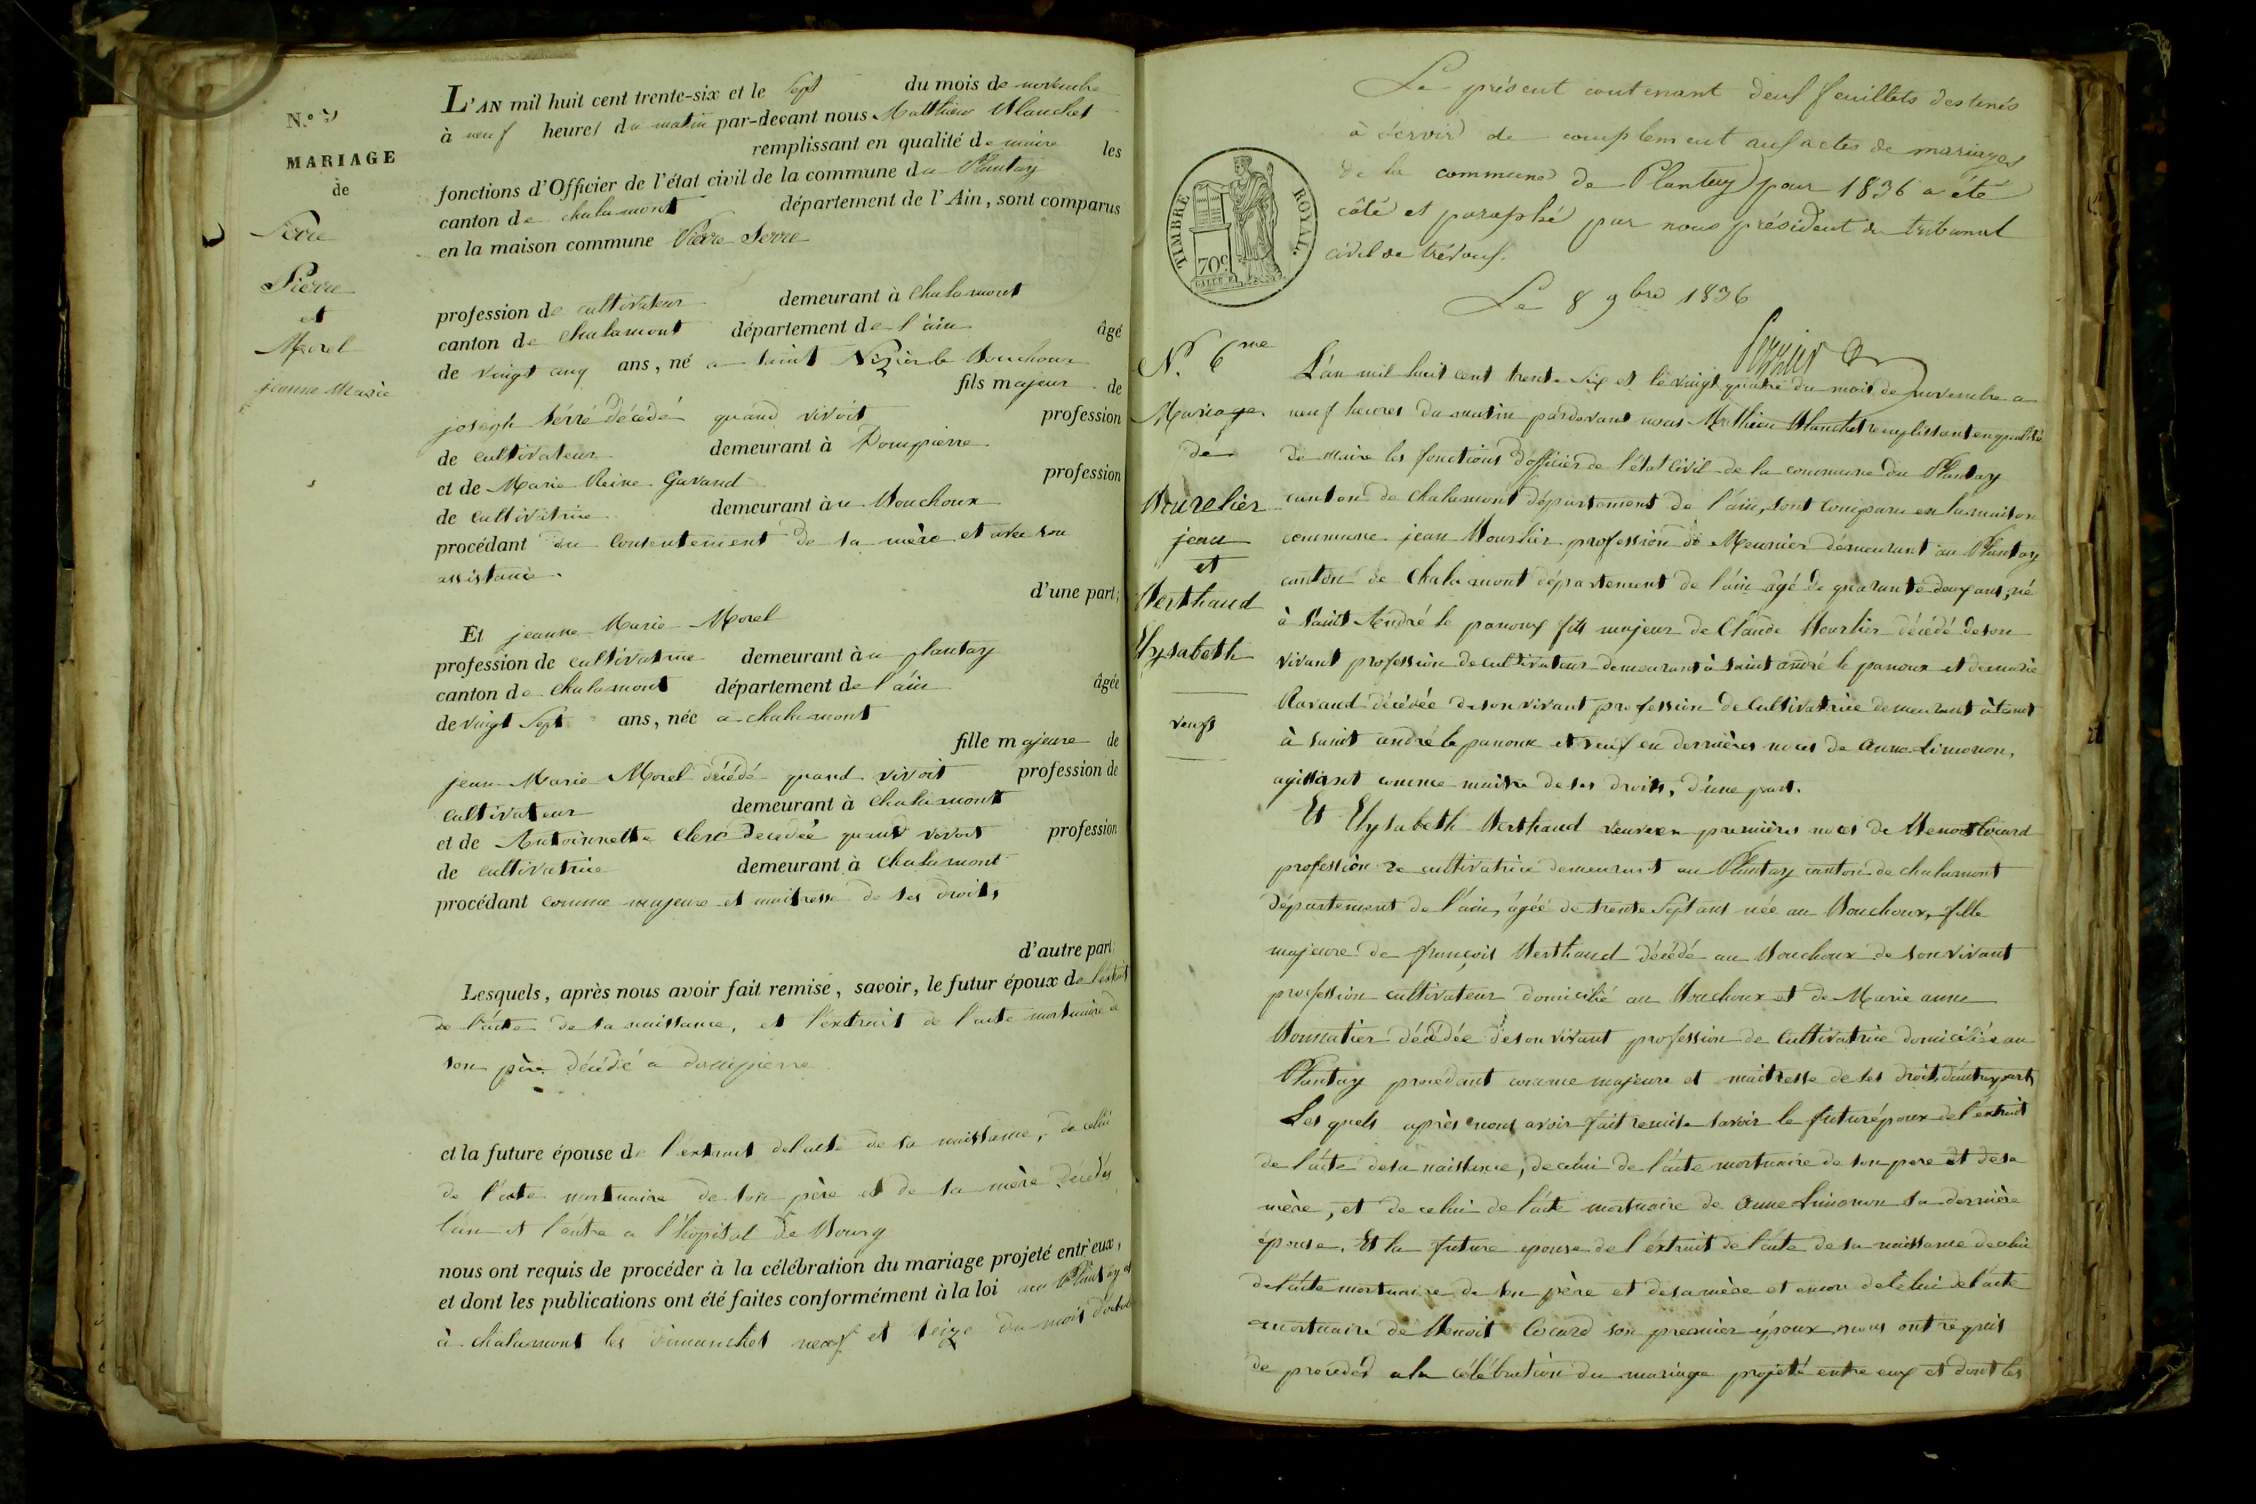 N.o 5
MARIAGE
de
Serre
Pierre
et
Morel
jeanne Marie
L'AN mil huit cent trente-six et le sept du mois de novembre
à neuf heures du matin par-devant nous Matthieu Blanchet
remplissant en qualité de maire les
fonctions d'Officier de l'état civil de la commune du Plantay
canton de chalamont département de l'Ain, sont comparus
en la maison commune Pierre Serre
profession de cultivateur demeurant à chalamont
canton de chalamont département de l'ain âgé
de vingt cinq ans, né a saint Nizier le Bouchoux
fils majeur de
joseph serre décédé quand vivoit profession
de cultivateur demeurant à Dompierre
et de Marie Reine Gavand profession
de cultivatrice demeurant àu Bouchoux
procédant du consentement de sa mère et avec son
assistance.
d'une part;
Et jeanne Marie Morel
profession de cultivatrice demeurant àu plantay
canton de chalamont département de l'ain âgée
de vingt sept ans, née a chalamont
fille majeure de
jean Marie Morel décédé quand vivoit profession de
cultivateur demeurant à chalamont
et de Antoinette Clerc decedée quand vivoit profession
de cultivatrice demeurant à chalamont
procédant comme majeure et maitresse de ses droits
d'autre part
Lesquels, après nous avoir fait remise, savoir, le futur époux de l'extrait
de l'acte de sa naissance, et l'extrait de l'acte mortuaire de
son père décédé a dompierre
et la future épouse de l'extrait del'acte de sa naissance, de celui
de l'acte mortuaire de son père et de sa mère décédés
l'un et l'autre a l'hopital de Bourg
nous ont requis de procéder à la célébration du mariage projeté entr'eux,
et dont les publications ont été faites conformément à la loi au Plantay et
à chalamont les dimanches neuf et seize du mois d'octobre
Le présent contenant deux feuillets destinés
à servir de complement aux actes de mariages
de la commune de Plantay pour 1836 a été
côté et paraphé par nous président du tribunal
civil de trévoux.
Le 8 9bre 1836
TIMBRE ROYAL.
70c
N. 6me
Mariage
de
Bourelier
jean
et
Berthaud
Elysabeth
veufs
L'an mil huit cent trente six et le vingt quatre du mois de novembre a
neuf heures du matin pardevant nous Mathieu Blanchet remplissant en qualité
de maire les fonctions d'officier de l'état civil de la commune du Plantay
canton de chalamont département de l'ain, sont comparu en la maison
commune jean Bourlier profession de Meunier demeurant au Plantay
canton de chalamont département de l'ain agé de quarante deux ans, né
à Saint André le panoux fils majeur de Claude Bourlier décédé de son
vivant profession de cultivateur demeurant à saint andré le panoux et de marie
Ravaud décédée de son vivant profession de cultivatrice demeurant
à saint andré le panoux et veuf en dernières noces de anne Limonon,
agissant comme maitre de ses droits, d'une part.
Et Elysabeth Berthaud veuve en premières noces de Benoit Cocard
profession de cultivatrice demeurant au Plantay canton de chalamont
departement de l'ain, agée de trente sept ans née au Bouchoux, fille
majeure de françois Berthaud décédé au Bouchoux de son vivant
profession cultivateur domicilié au Bouchoux et de Marie anne
décédée de son vivant profession de cultivatrice domiciliée au
Plantay procedant comme majeure et maitresse de ses droits d'autre part
Lesquels après nous avoir fait remise savoir le futur époux de l'extrait
de l'acte de sa naissance, de celui de l'acte mortuaire de son pere et de sa
mère, et de celui de l'acte mortuaire de anne Limonon sa dernière
épouse. Et la future epouse de l'extrait de l'acte de sa naissance de celui
de l'acte mortuaire de son père et de sa mère et encore de celui de l'acte
mortuaire de Benoit Cocard son premier époux nous ont requis
de proceder a la célébration du mariage projeté entre eux et dont les